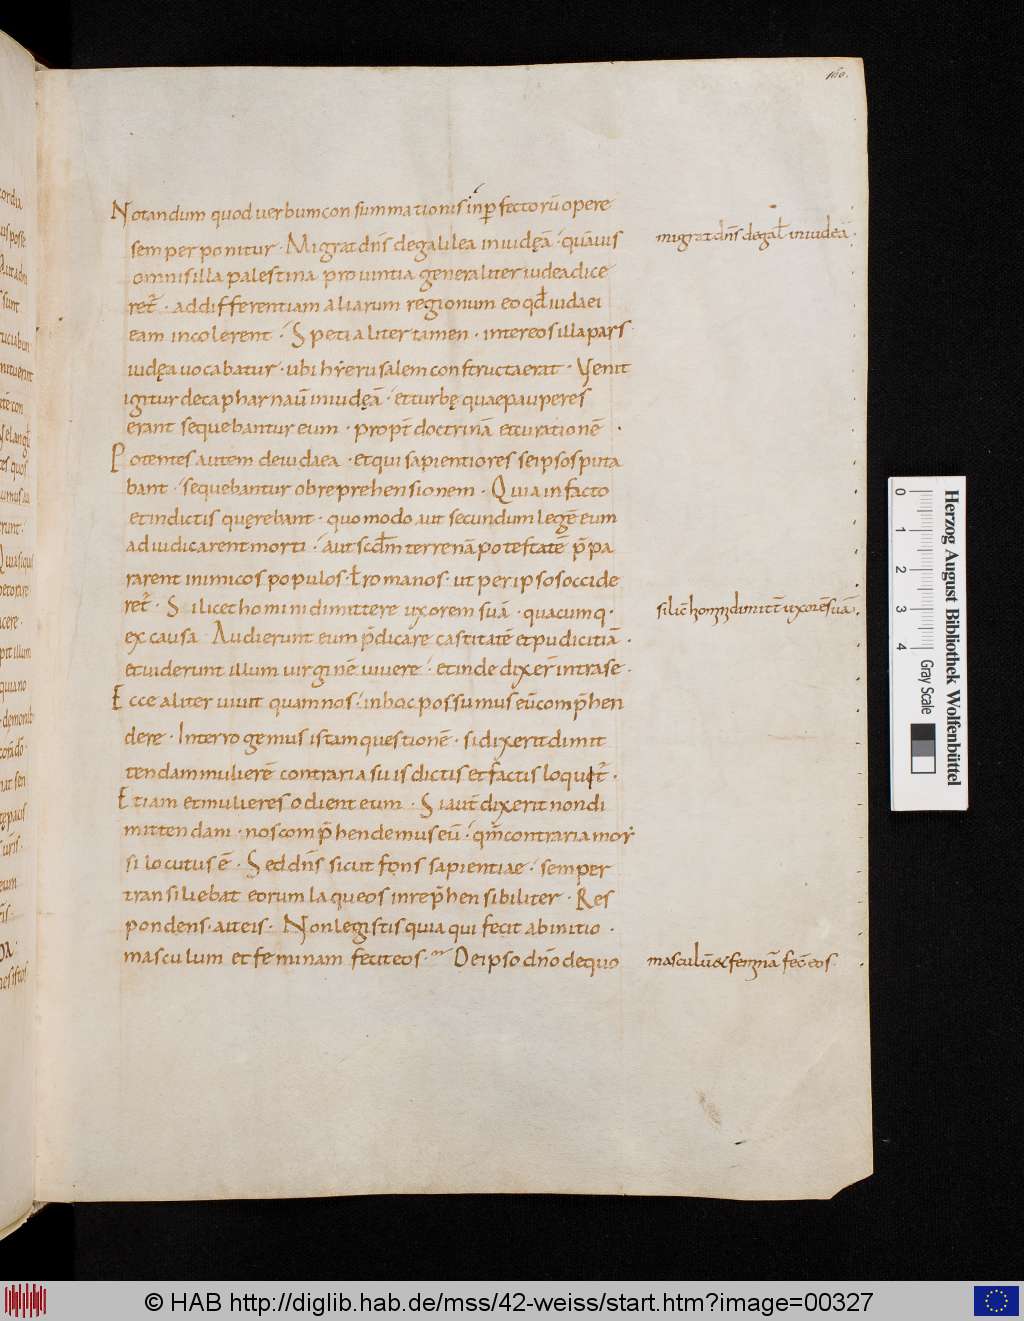 160.
Notandum quod uerbum consummationis inp̄fectorū opere
semper ponitur · Migrat dn̄s de galilea in iudęā · quāuis
omnis illa palestina prouintia generaliter iudea dice
ret᷑ · ad differentiam aliarum regionum eo qđ iudaei
eam incolerent · Spetialiter tamen · inter eos illa pars
iudęa uocabatur · ubi hyerusalem constructa erat · Venit
igitur de capharnaū in iudęā · et turbę quae pauperes
erant sequebantur eum · propt̄ doctrinā et curationē ·
Potentes autem de iudaea · et qui sapientiores se ipsos puta
bant · sequebantur ob reprehensionem · Quia in facto
et in dictis quęrebant · quomodo aut secundum legē eum
adiudicarent morti · aut scd̄m terrenā potestatē p̄pa
rarent inimicos populos · ł romanos · ut per ipsos occide
ret᷑ · Si licet homini dimittere uxorem suā · quacumq·
ex causa · Audierunt eum p̄dicare castitatē et pudicitiā ·
et uiderunt illum uirginē uiuere · et inde dixer̄ intra se ·
Ecce aliter uiuit quam nos · in hoc possumus eū comp̄hen
dere · Interrogemus istam questionē · si dixerit dimit
tendam mulierē contraria suis dictis et factis loquit᷑ ·
Etiam et mulieres odient eum · Si aut̄ dixerit non di
mittendam · nos comp̄hendemus eū · qm̄ contraria moy
si locutus ē · Sed dn̄s sicut fons sapientiae · semper
transiliebat eorum laqueos inrep̄hensibiliter · Res
pondens · ait eis · Non legistis quia qui fecit ab initio ·
masculum et feminam fecit eos · De ipso dn̄o de quo
migrat dn̄s de gał in iudeā ·
si lic̄ homini dimitt̄ uxorē suā ·
masculū & feminā fec̄ eos ·
0 1 2 3 4
Gray Scale
Herzog August Bibliothek Wolfenbüttel
© HAB http://diglib.hab.de/mss/42-weiss/start.htm?image=00327